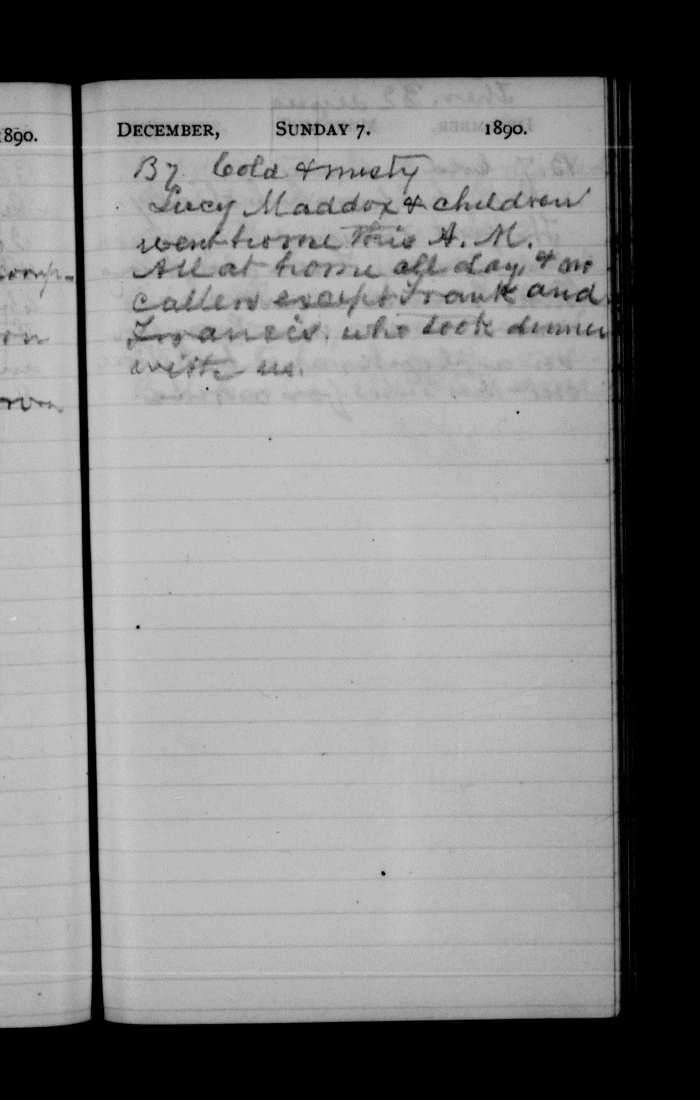 1890.
DECEMBER, SUNDAY 7. 1890.
By. Cold & misty
Lucy Maddox & children
went home this A. M.
All at home all day, & no
callers except Frank and
Francis. who took dinner
with us.